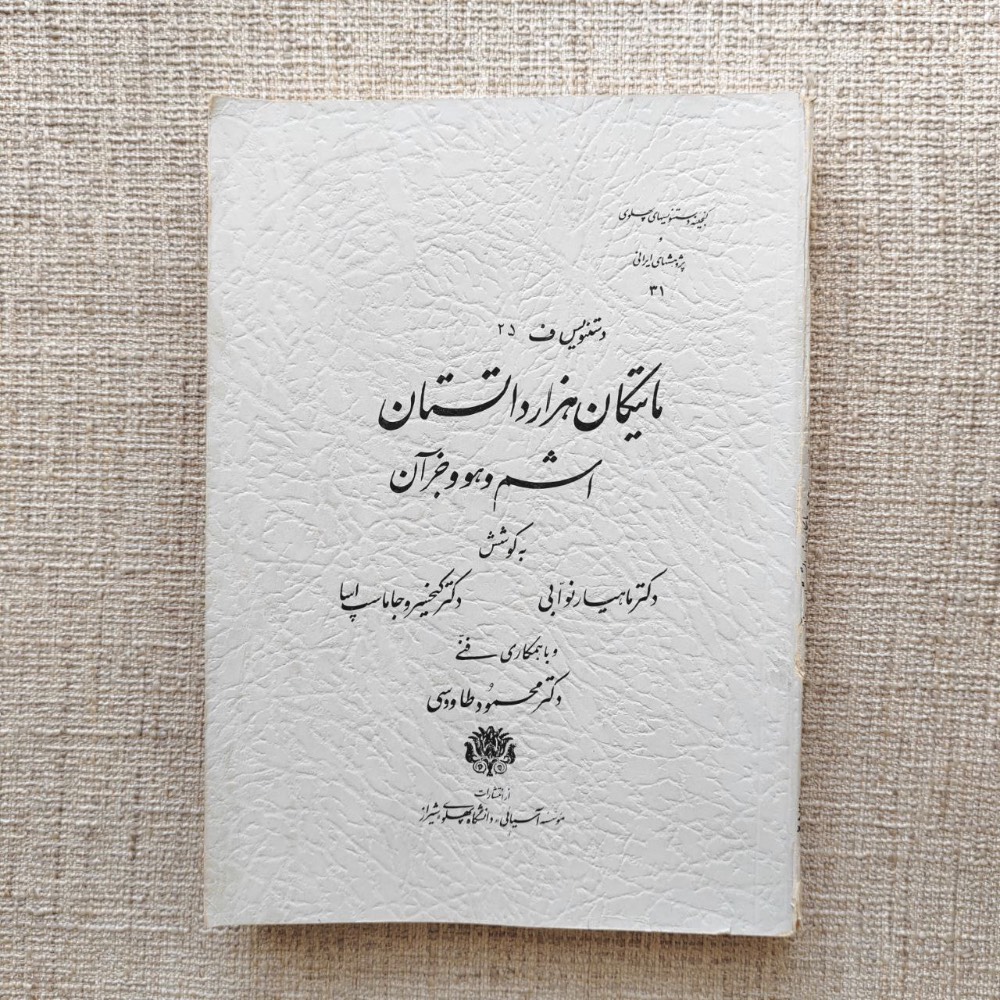 گنجینه دستنویسهای پهلوی
و
پژوهشهای ایرانی
۳۱
دستنویس ف ۲۵
ماتیکان هزار داتستان
اشم وهو و جز آن
به کوشش
دکتر ماهیار نوابی دکتر کیخسرو جاماسپ اسا
و با همکاری فنی
دکتر محمود طاووسی
از انتشارات
مؤسسه آسیائی، دانشگاه پهلوی، شیراز